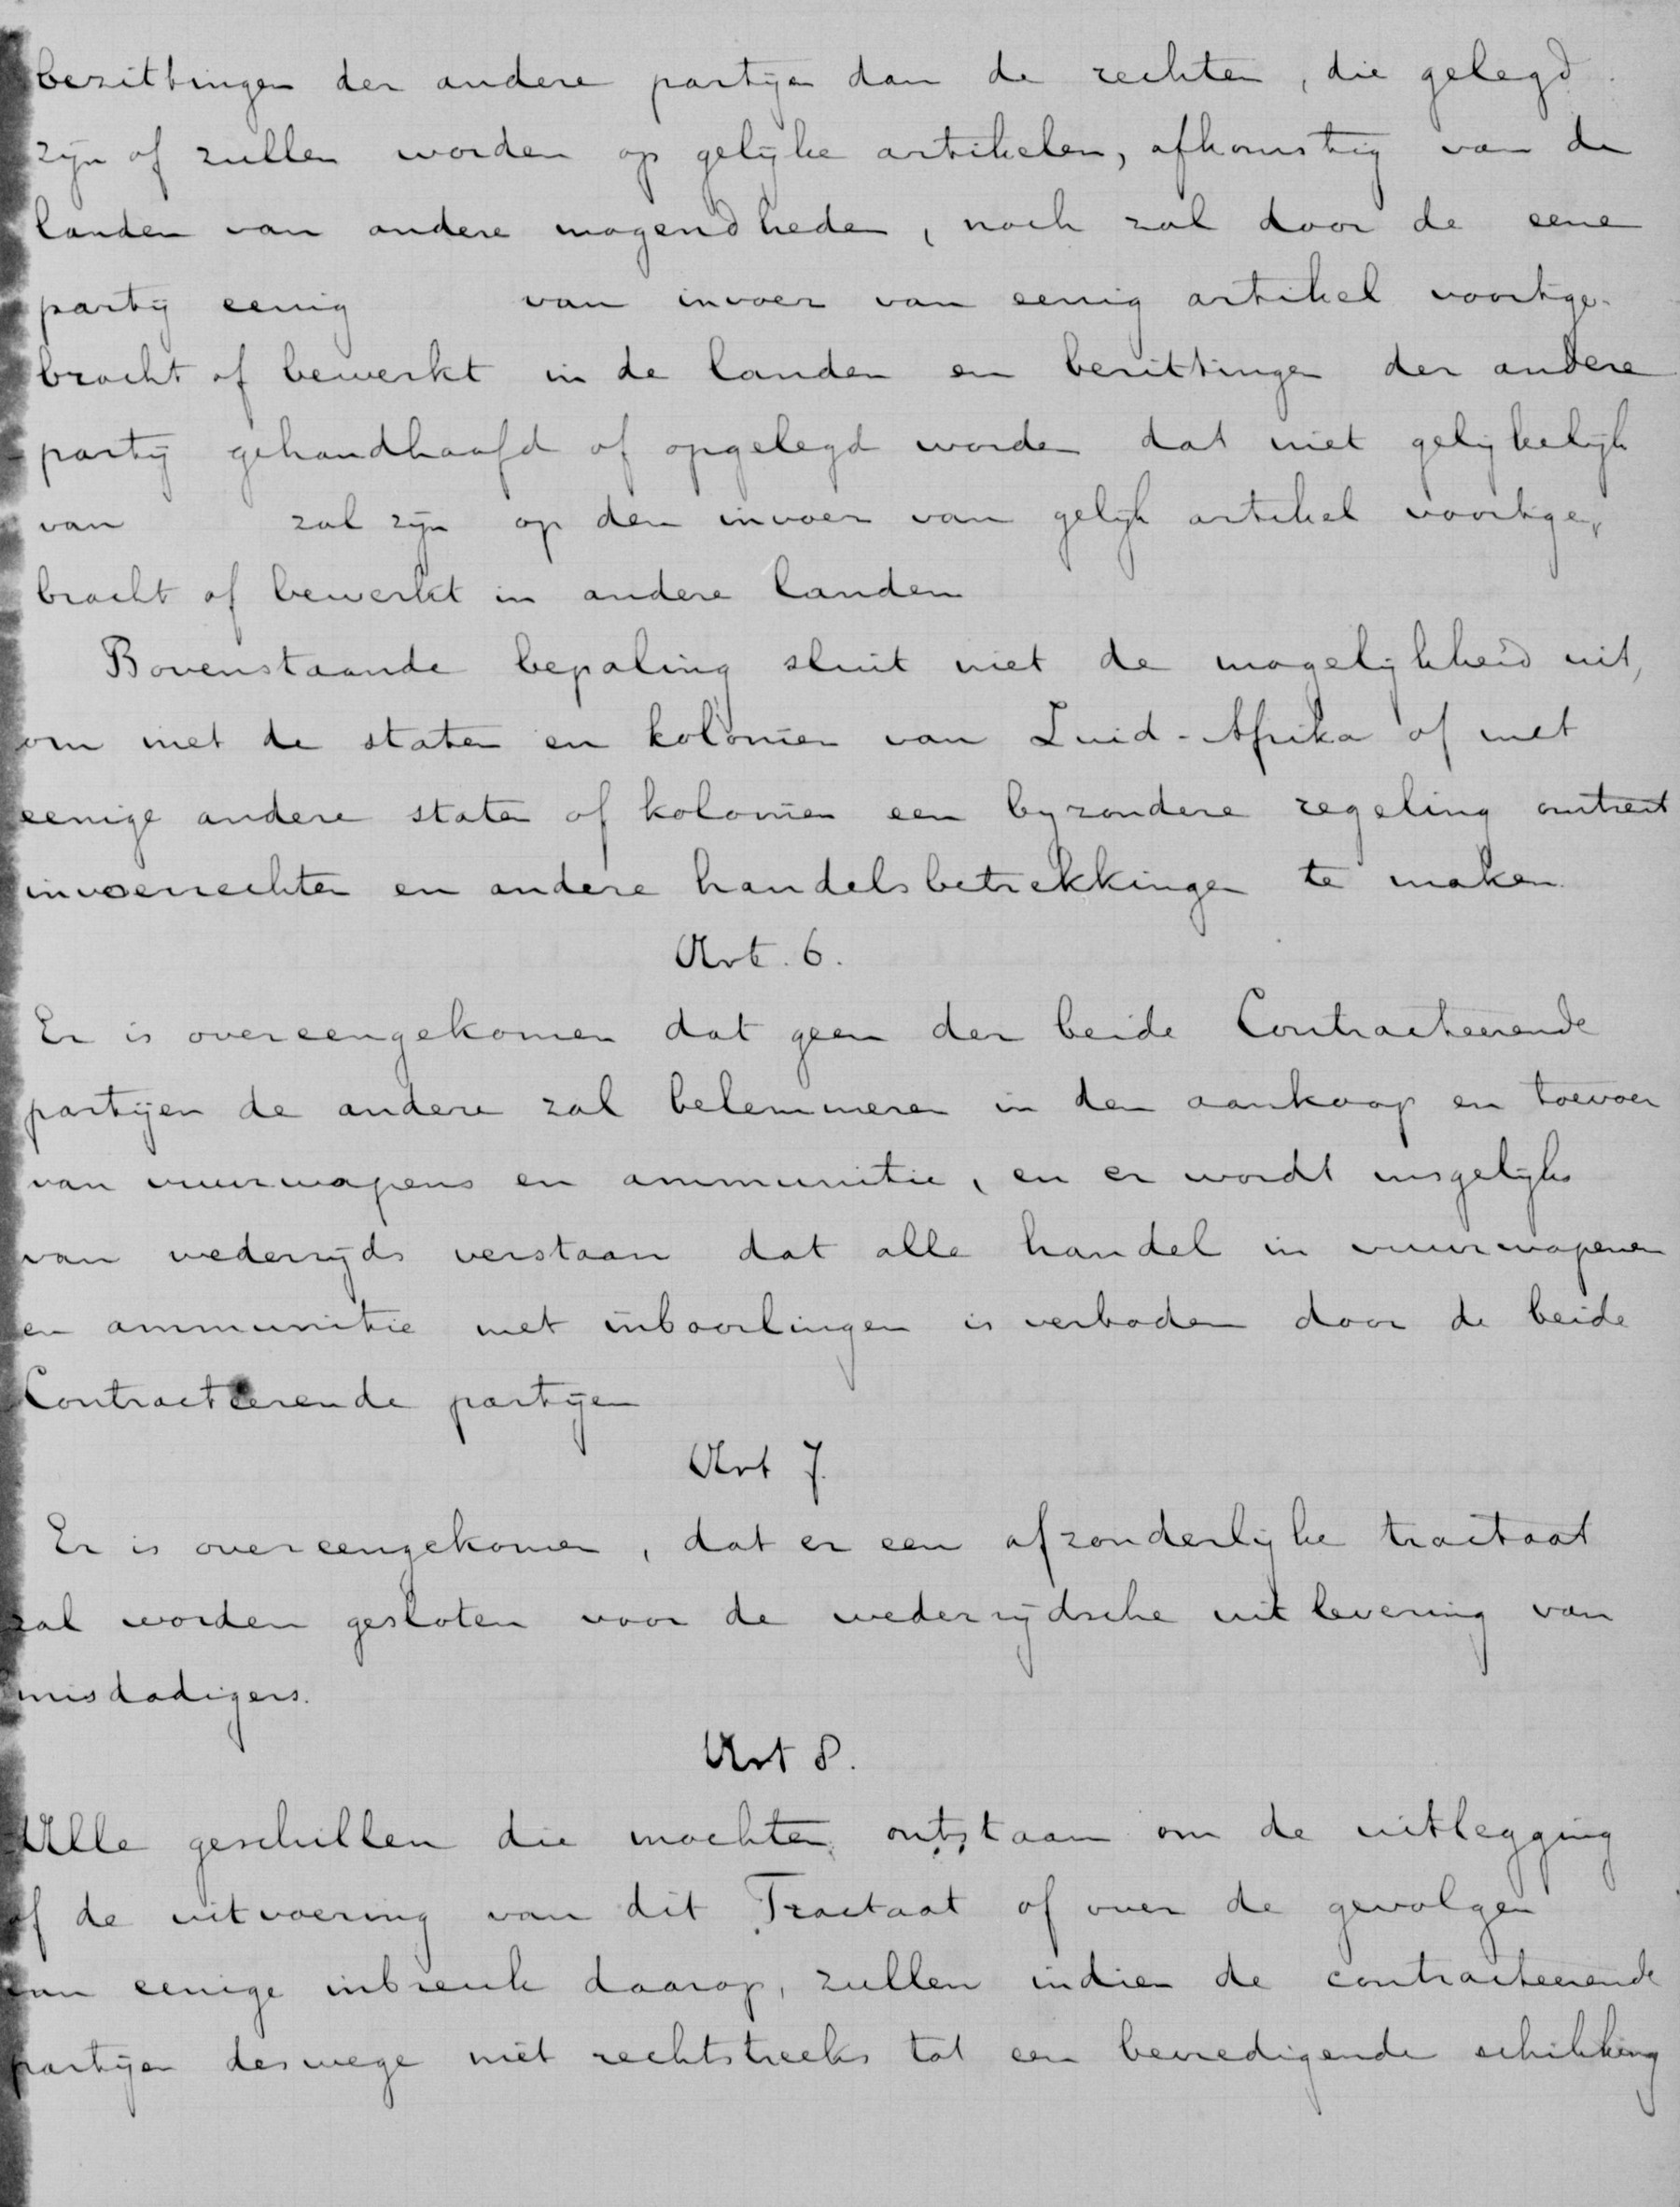 bezittingen der andere partijen dan de rechten, die gelegd
zijn of zullen worden op gelijke artikelen, afkomstig van de
landen van andere mogendheden, noch zal door de eene
partij eenig van invoer van eenig artikel voortge-
bracht of bewerkt in de landen en bezittingen der andere
partij gehandhaafd of opgelegd worden dat niet gelijkelijk
van zal zijn op den invoer van gelijk artikel voortge,
bracht of bewerkt in andere landen
Bovenstaande bepaling sluit niet de mogelijkheid uit,
om met de staten en koloniën van Zuid-Afrika of met
eenige andere staten of koloniën een byzondere regeling omtrent
invoerrechten en andere handelsbetrekkingen te maken.
Art. 6.
Er is overeengekomen dat geen der beide Contracteerende
partijen de andere zal belemmeren in den aankoop en toevoer
van vuurwapens en ammunitie, en er wordt insgelijks
van wederzijds verstaan dat alle handel in vuurwapenen
en ammunitie met inboorlingen is verboden door de beide
Contracteerende partijen
Art 7.
Er is overeengekomen, dat er een afzonderlijke tractaat
zal worden gesloten voor de wederzijdsche uitlevering van
misdadigers.
Art 8.
Alle geschillen die mochten ontstaan om de uitlegging
of de uitvoering van dit Tractaat of over de gevolgen
van eenige inbreuk daarop, zullen indien de contracteerende
partijen deswege niet rechtstreeks tot een bevredigende schikking